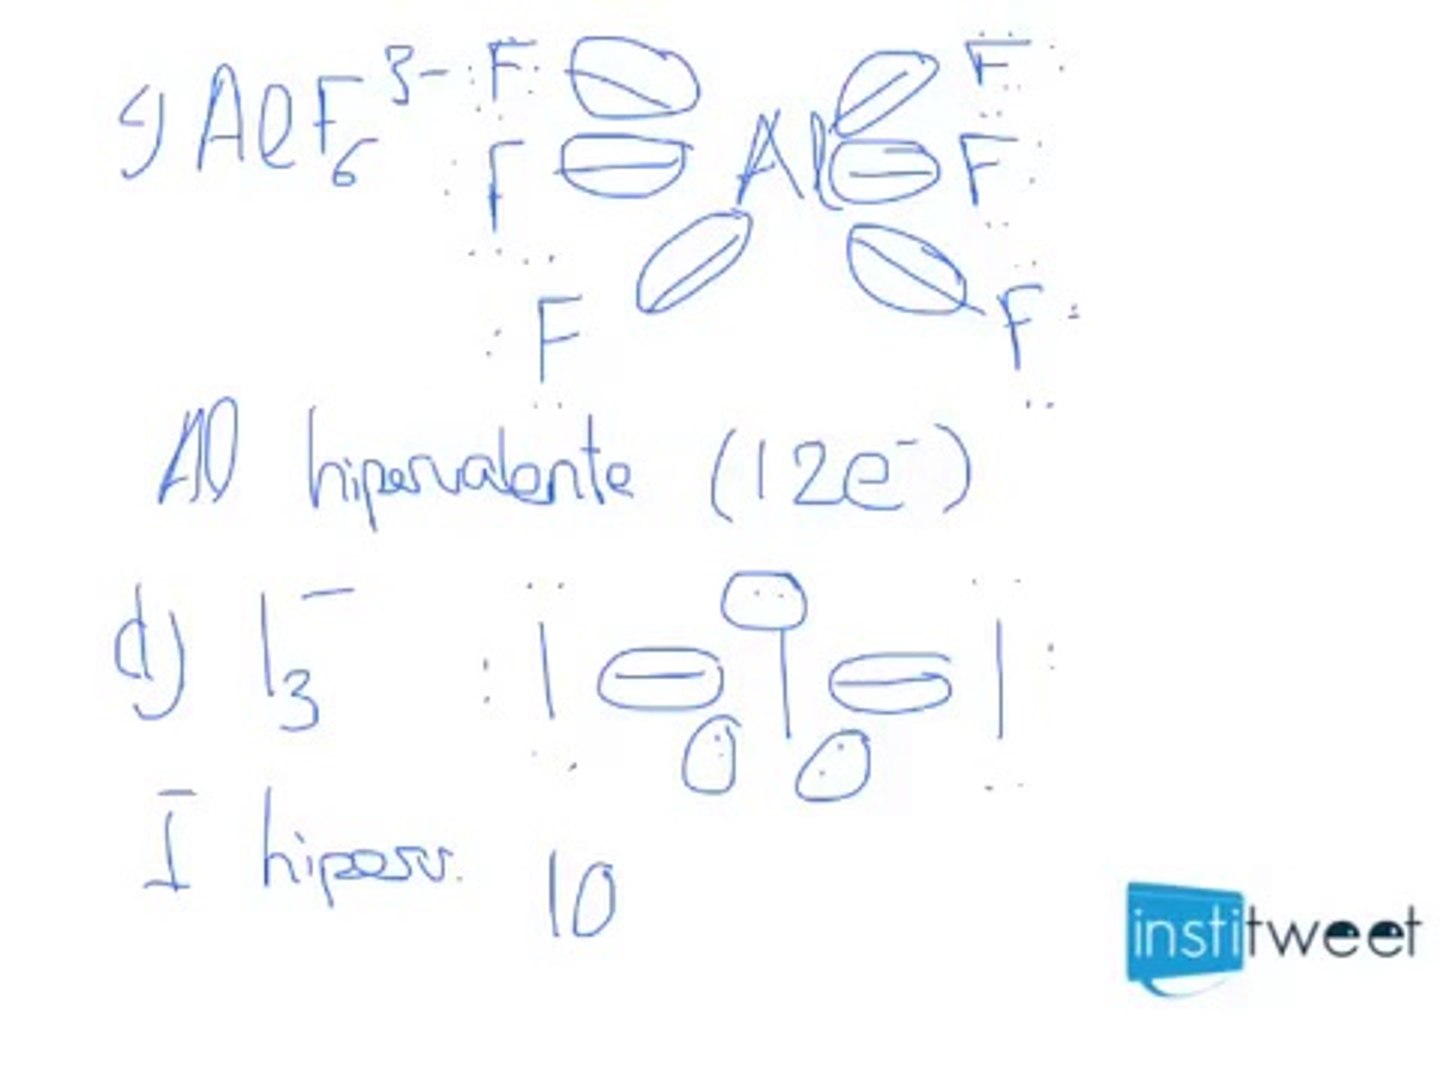 c) AlF₆³⁻ :F: Al F:
:F F:
:F F:
Al hipervalente (12e⁻)
d) I₃⁻ :I I I:
I hiperv. 10
institweet